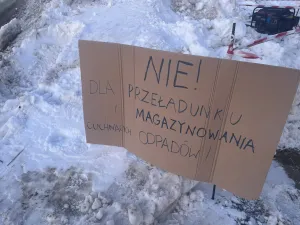 NIE!
DLA PRZEŁADUNKU
I MAGAZYNOWANIA
ODPADÓW!